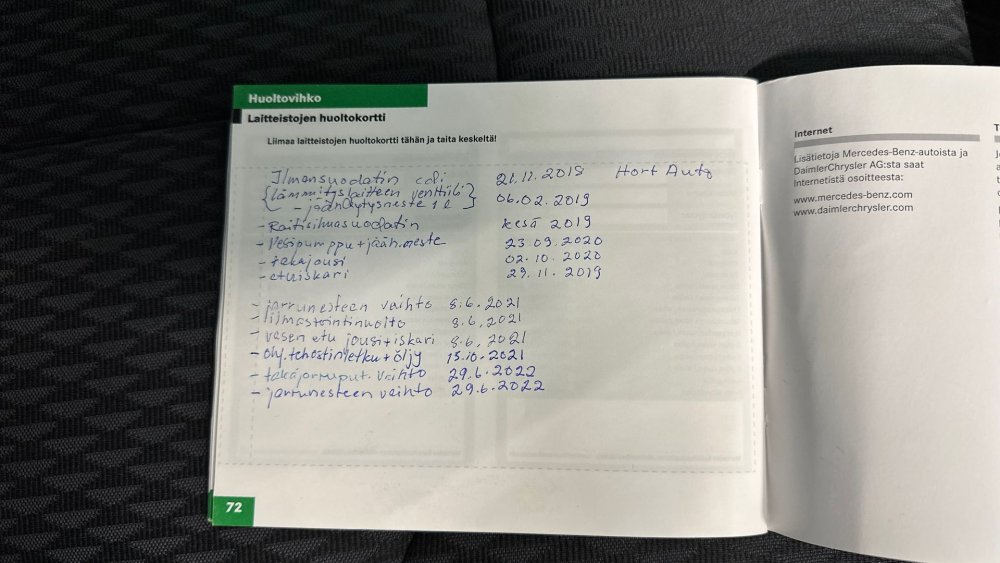 Huoltovihko
Laitteistojen huoltokortti
Liimaa laitteistojen huoltokortti tähän ja taita keskeltä!
Ilmansuodatin cdi 21.11.2018 Hort Auto
{lämmityslaitteen venttiili
- jäähdytysneste 1 l } 06.02.2019
- Raitisilmasuodatin kesä 2019
- Vesipumppu + jääh.neste 23.09.2020
- takajousi 02.10.2020
- etuiskari 29.11.2019
- jarrunesteen vaihto 8.6.2021
- ilmastointihuolto 8.6.2021
- vasen etu jousi+iskari 8.6.2021
- ohj.tehostinletku + öljy 15.10.2021
- takajarruput. vaihto 29.6.2022
- jarrunesteen vaihto 29.6.2022
72
Internet
Lisätietoja Mercedes-Benz-autoista ja
DaimlerChrysler AG:sta saat
Internetistä osoitteesta:
www.mercedes-benz.com
www.daimlerchrysler.com